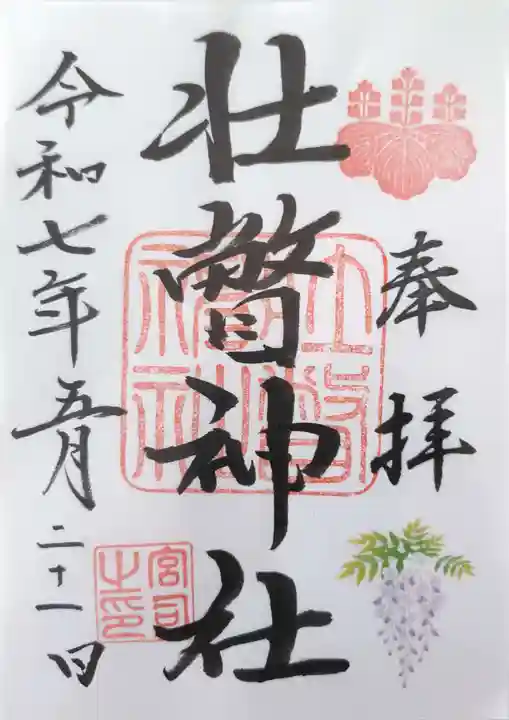 奉拝
壮瞥神社
壮瞥神社
宮司之印
令和七年五月二十一日